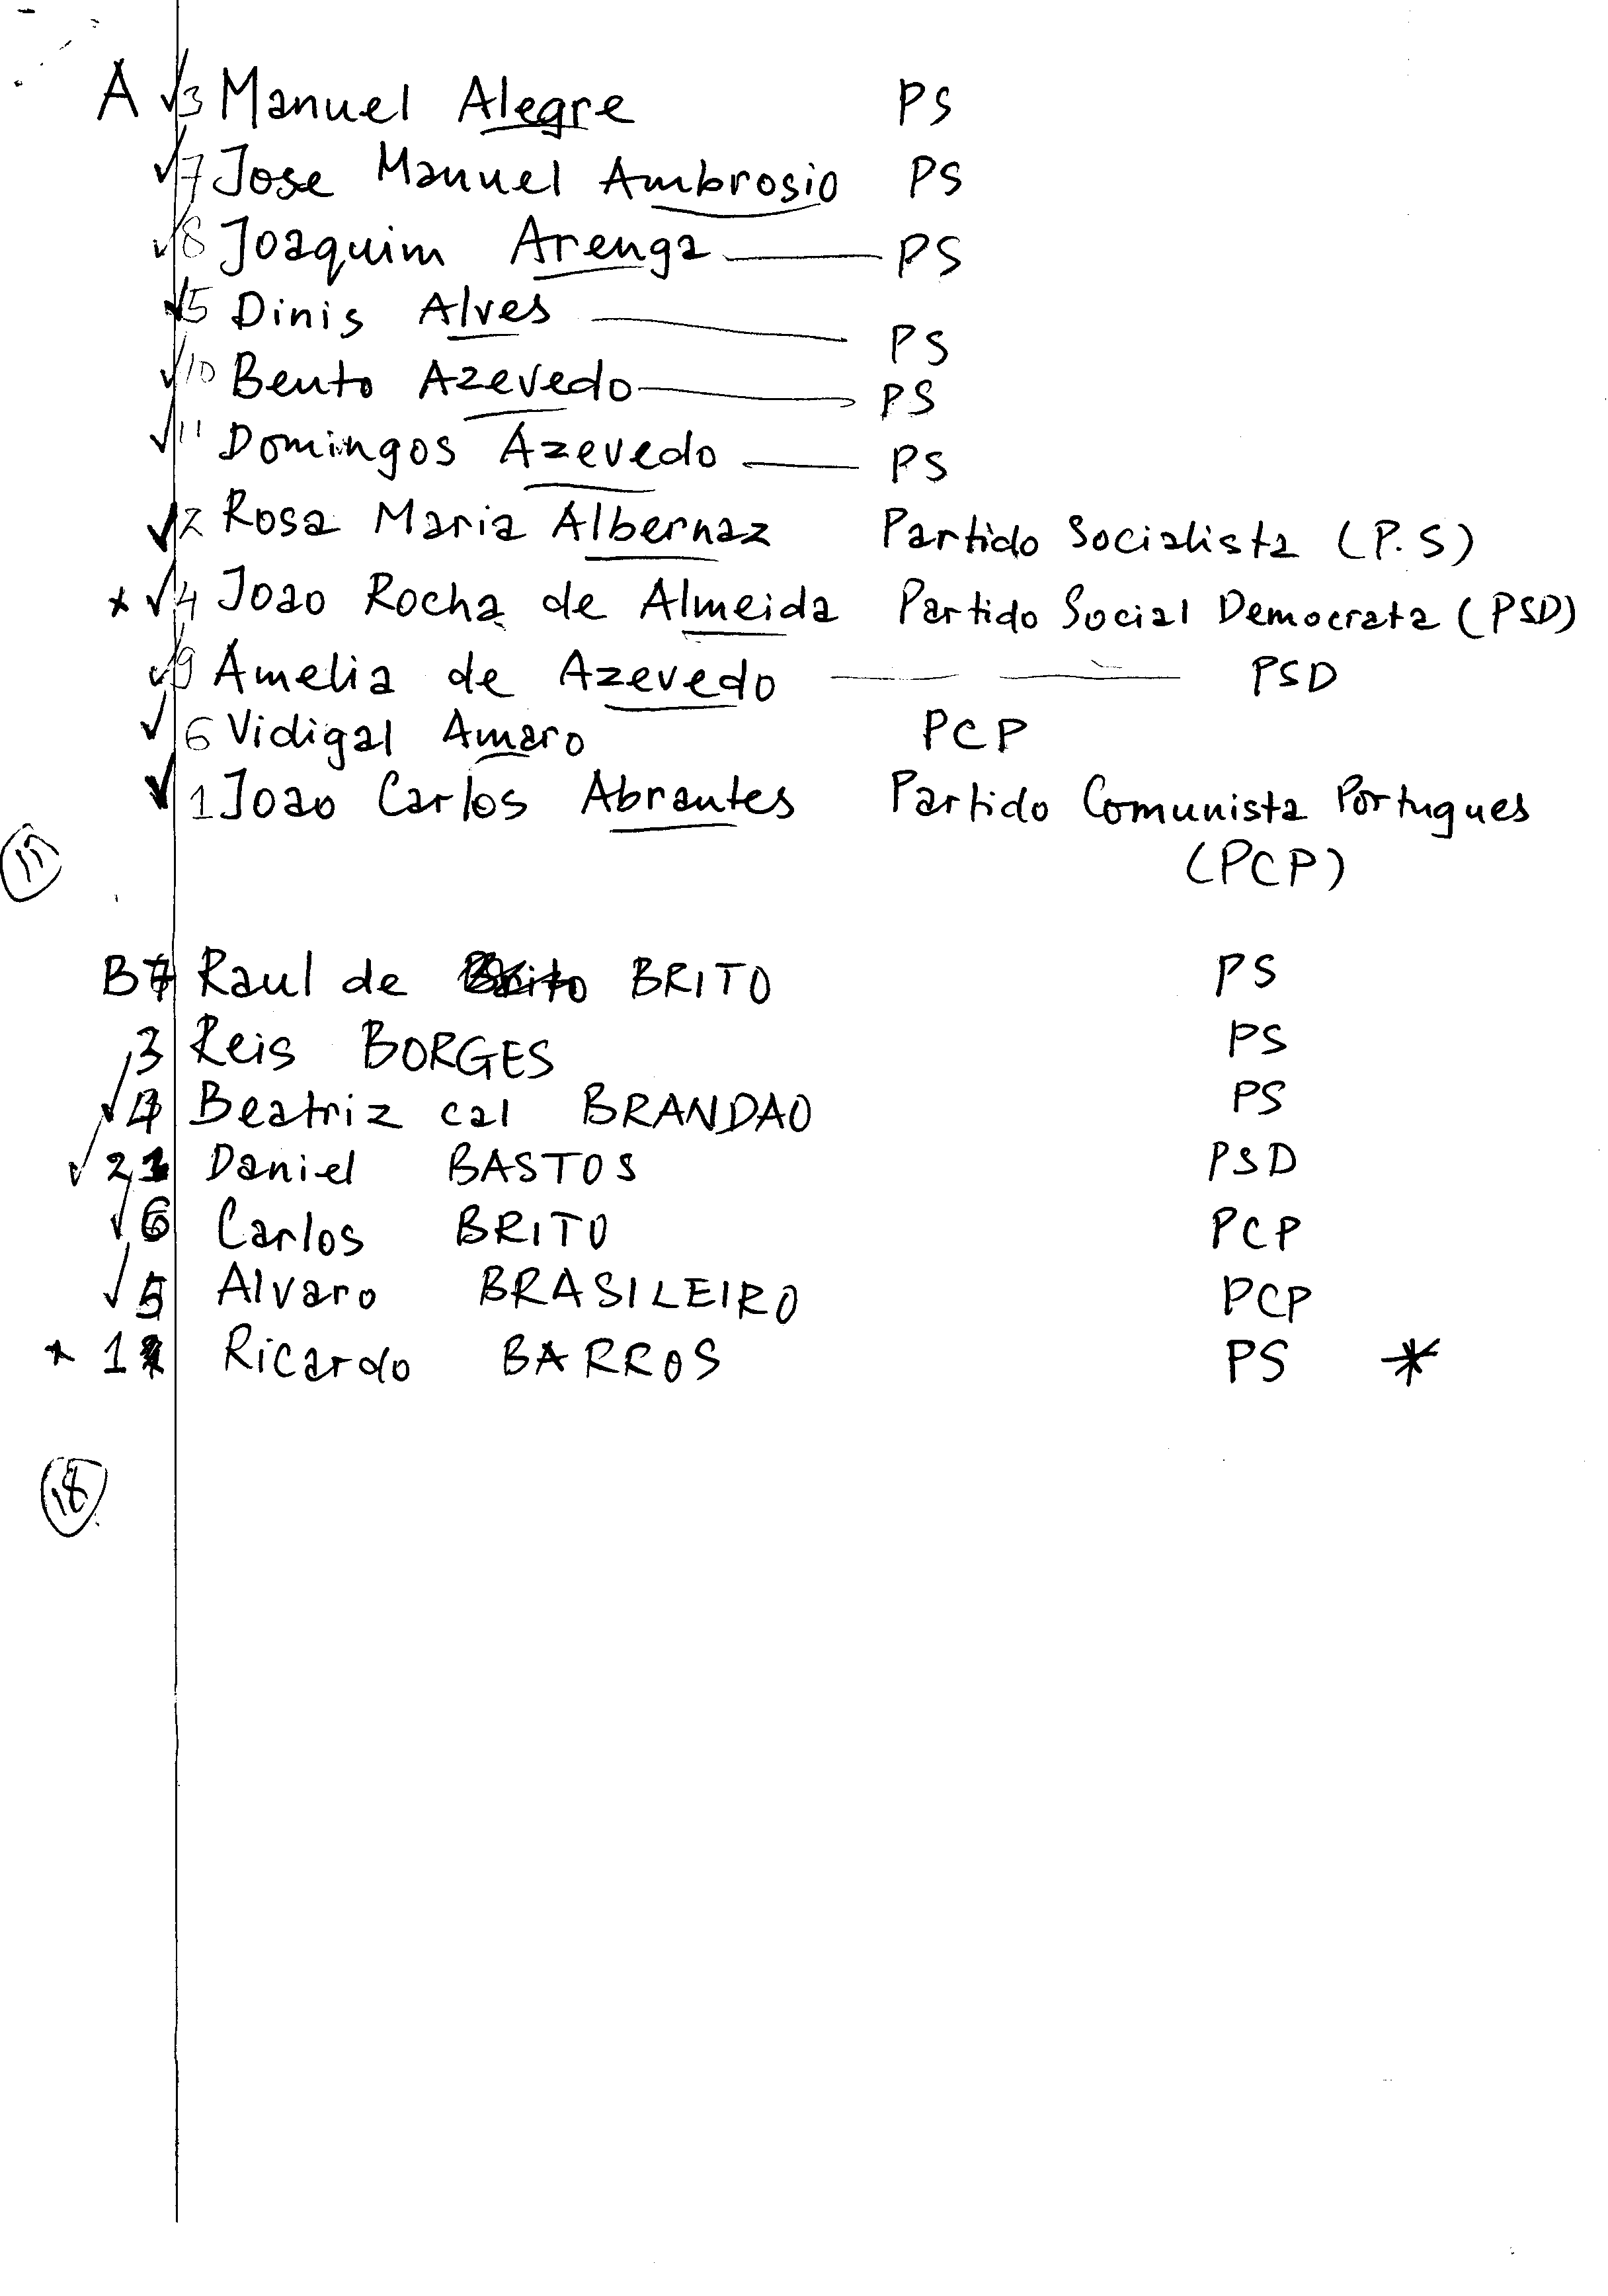 A √3 Manuel Alegre PS
√7 Jose Manuel Ambrosio PS
√8 Joaquim Arenga — PS
√5 Dinis Alves — PS
√10 Bento Azevedo — PS
√11 Domingos Azevedo — PS
√2 Rosa Maria Albernaz Partido Socialista (P.S)
* √4 Joao Rocha de Almeida Partido Social Democrata (PSD)
√9 Amelia de Azevedo — — PSD
√6 Vidigal Amaro PCP
√1 Joao Carlos Abrantes Partido Comunista Portugues
(PCP)
B7 Raul de BRITO PS
3 Reis BORGES PS
√4 Beatriz cal BRANDAO PS
√2 Daniel BASTOS PSD
√6 Carlos BRITO PCP
√5 Alvaro BRASILEIRO PCP
* 1 Ricardo BARROS PS *
18